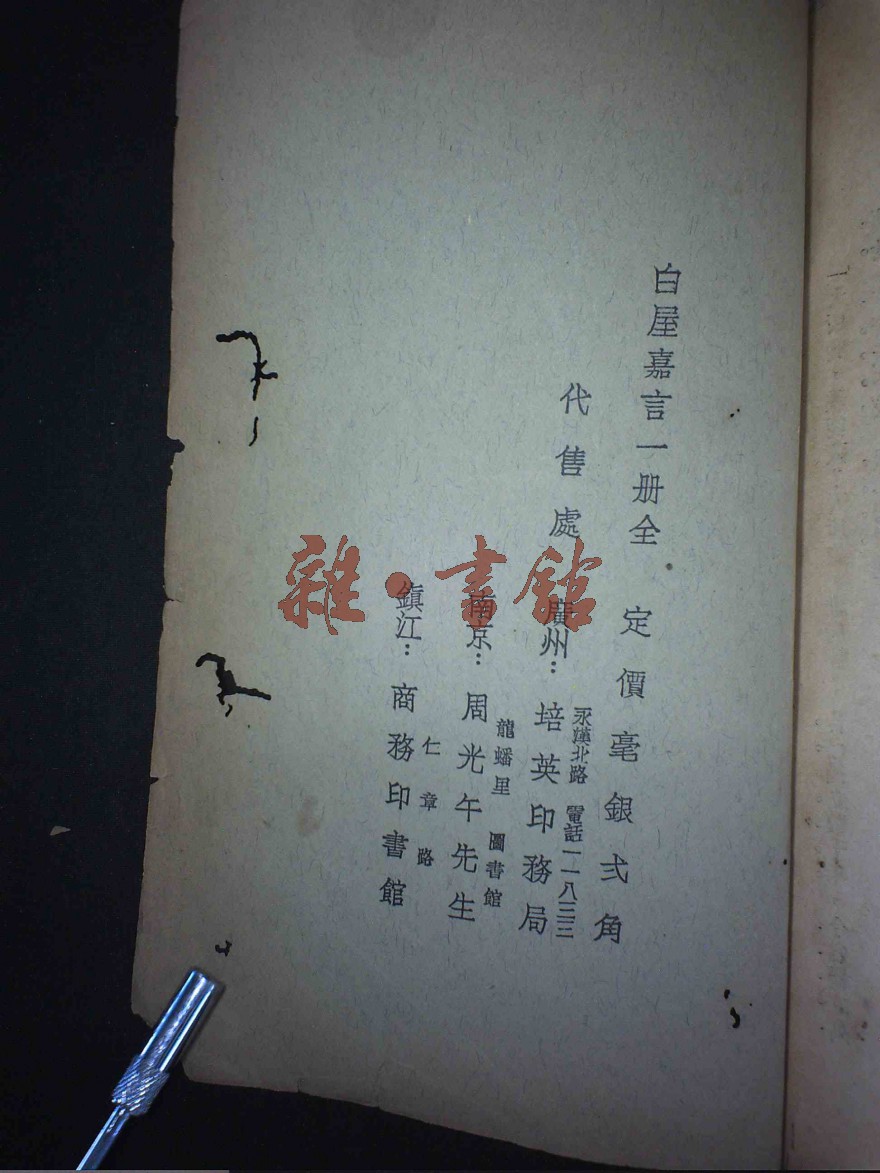 白屋嘉言一册全 定價毫銀弍角
代售處
廣州：培英印務局 永漢北路 電話一一八三三
南京：周光午先生 龍蟠里 圖書館
鎮江：商務印書館 仁章路
雜·書館